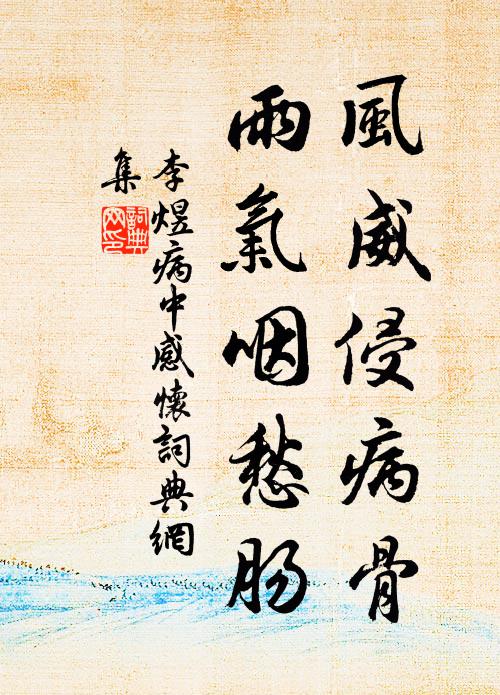 風威侵病骨
雨氣咽愁肠
李煜病中感懷詞典網
集
詞典
网印